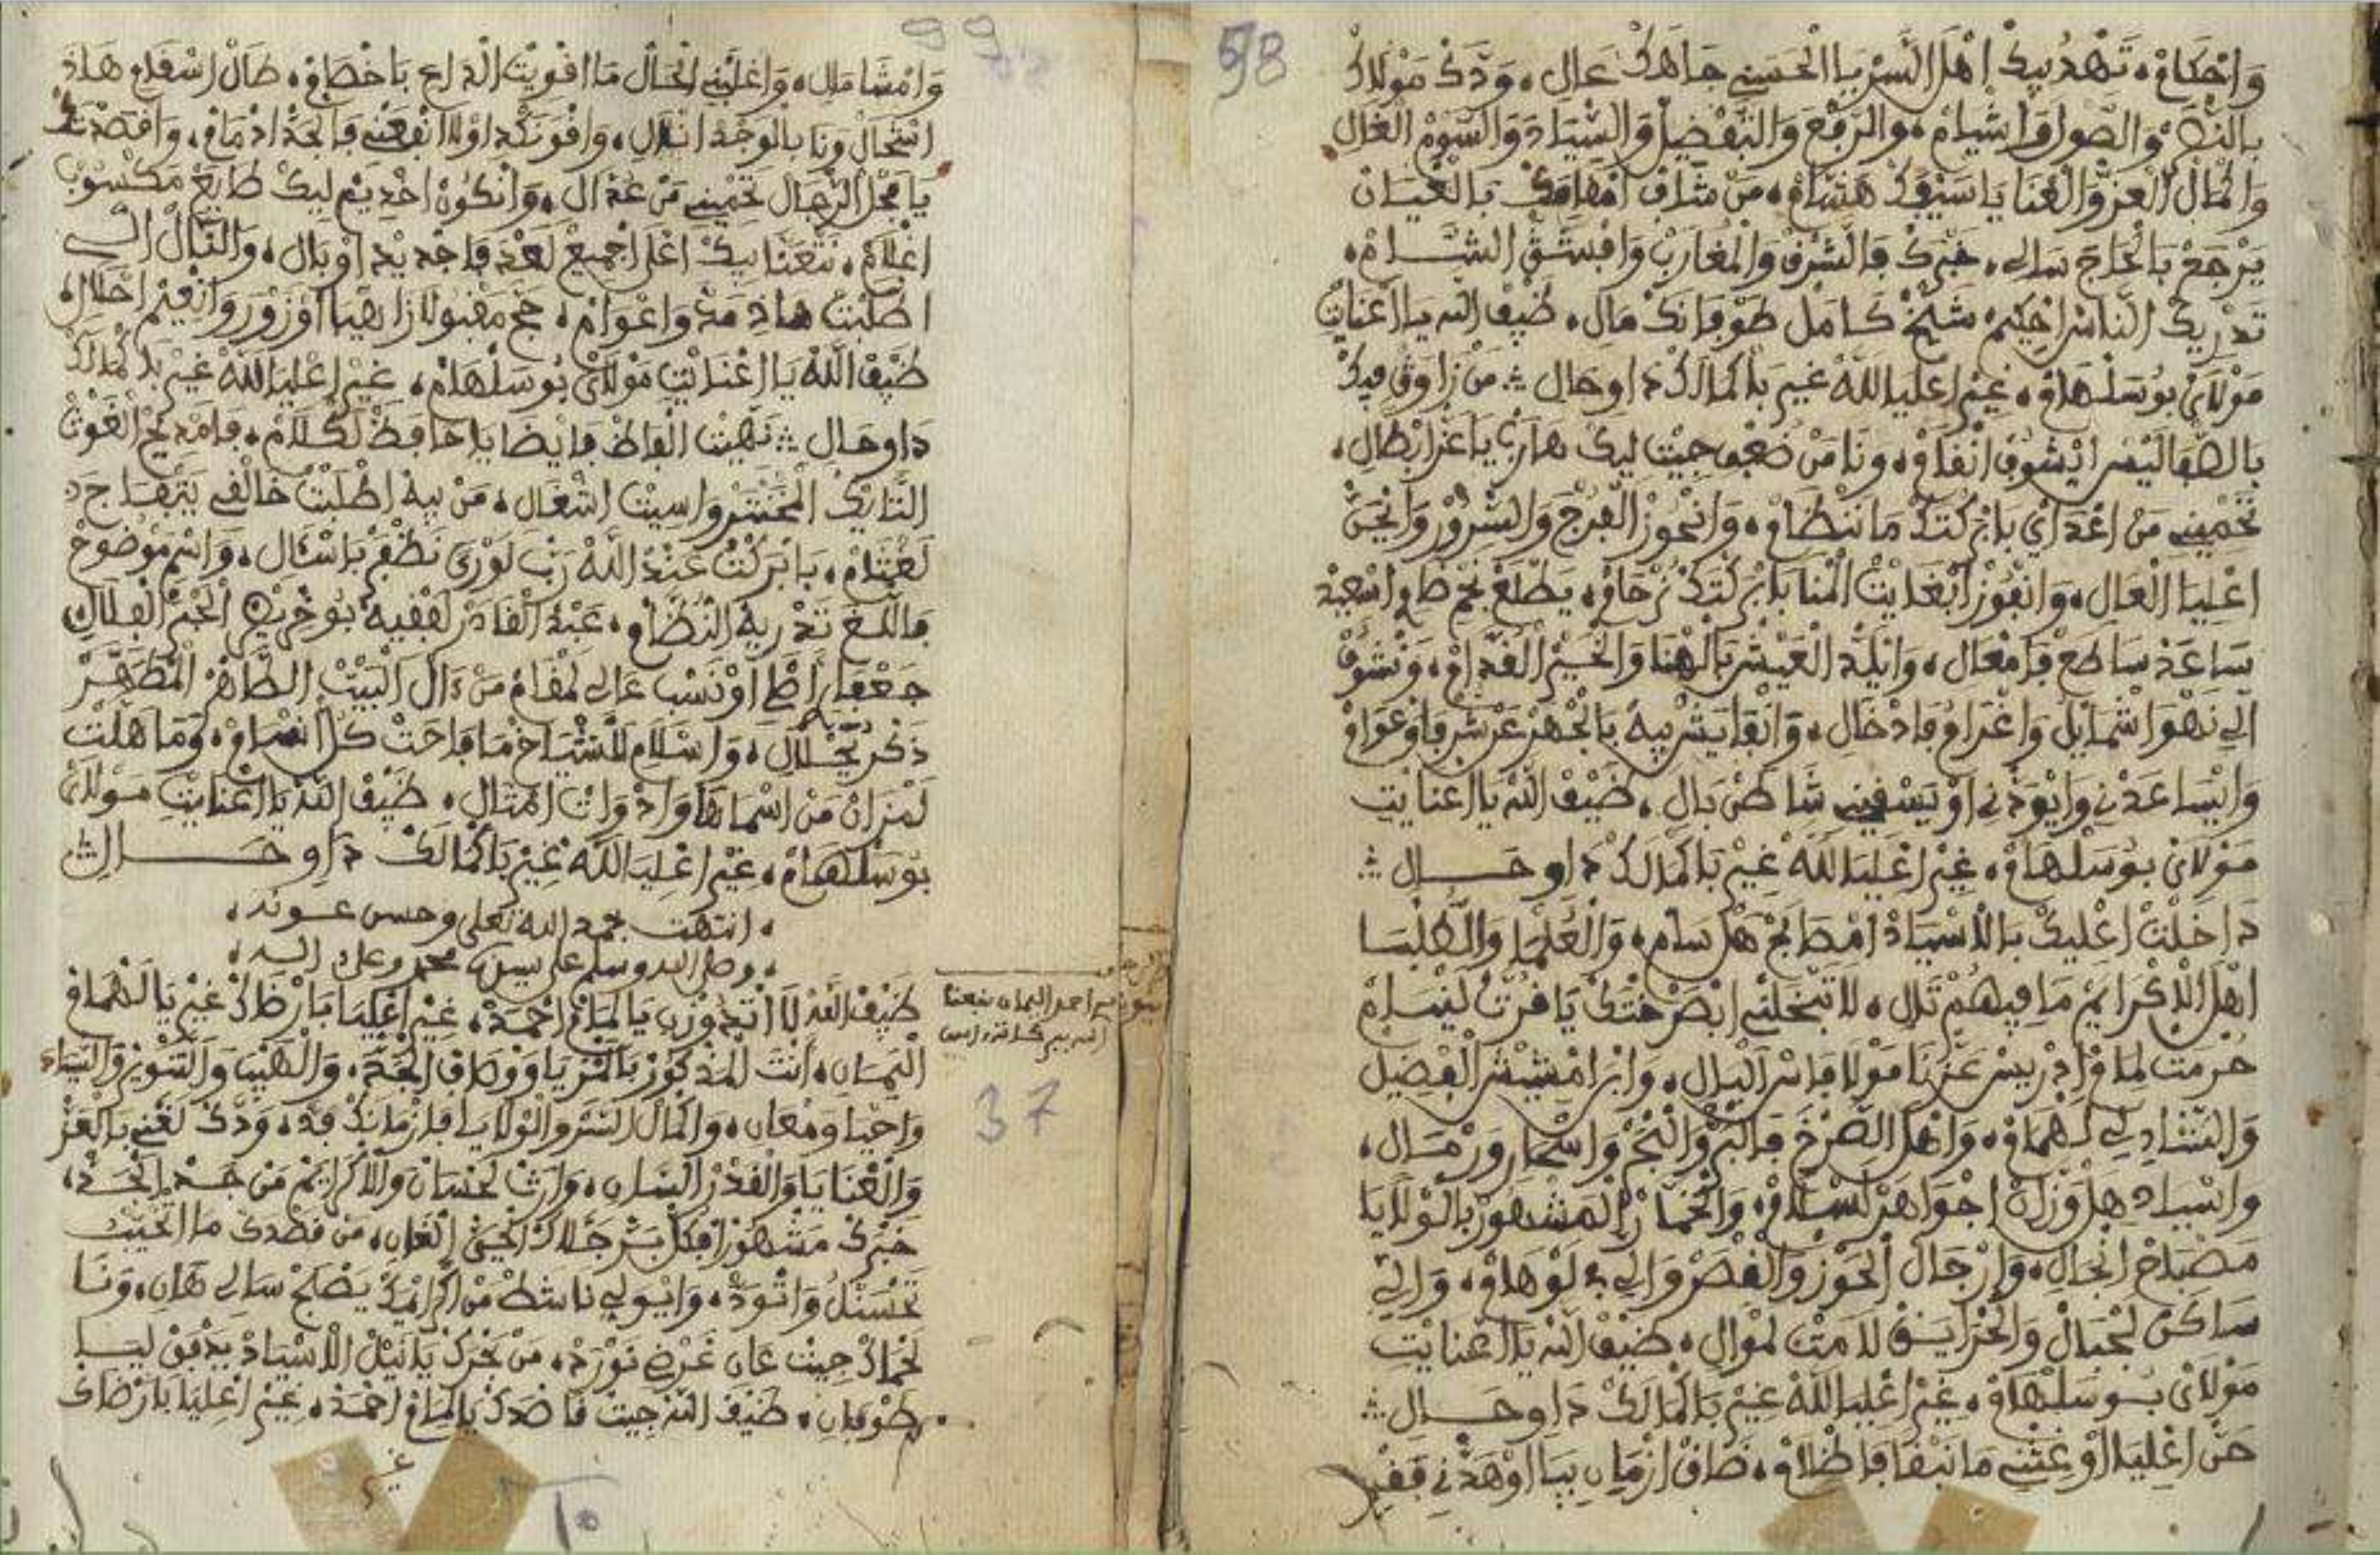 98
وَاحْكَامْ، تَهْدُ بِيكْ اهْلَ السّرْ يا الْحَسَنِي جَاهَكْ عَالِ، وَدَّكْ مَوْلَاكْ
بالنّصْر والصّولَ وَاشْيَامْ، والرّفْعَ وَالتّفْضِيلْ وَالسّْيَادَ وَالسّوْمْ الْغَالِ
وَالْمَالْ الْعَزّ وَالْغْنَا يَا سَيْفَكْ هَشَّامْ، مَنْ شَافْ امْقَامَكْ بالْعْيَانْ
يَرْجَعْ بَالْحَاجَ سَالِي، خَبْرَكْ فَالشّرْقْ وَالْمْغَارَبْ وَافْبَسْقْ الشَّامْ،
تَدْرِيكْ النّاسْ احْكِيمْ شَيْخْ كَامَلْ طَوْفَانَكْ مَالِ، ضَيْفْ اللّه يَا اعْنَايْتِ
مَوْلَايْ بُوسَلْهَامْ، غِيرْ اعْلِيَا اللّهْ غِيرْ بَاكْمَالَكْ داوِ حَالِ ؞ مَنْ زَاوَڨْ فِيكْ
بَالصّْفَا لِيسْ ايْشُوفْ انْقَامْ، وَنَا مَنْ ضُعْفِي جِيتْ لِيكْ هَارَبْ يَا عَزّ ابْطَالِ،
تَحْمِينِي مَنْ اعْدَايْ بَابْرَكْتَكْ مَا نَنْضَامْ، وَانْحُوزْ الْفَرْجْ وَالسّْرُورْ وَانْحَنّ
اعْلِيَا الْعَالِ، وَانْفُوزْ ابْغَايْتْ الْمْنَا بَابْرَكْتَكْ نَرْحَامْ، يَطْلَعْ نَجْمْ طَالِعْ اسْعِيدْ
سَاعَدْ سَاطَعْ فَامْعَالِ، وَانْلَدّ الْعَيْشْ بَالْهْنَا وَالْخَيْرْ الْقُدَّامْ، وَنْشُوفْ
الِّي نَهْوَا شْمَايْلَ وَاغْرَامُ فَادْخَالِ، وَانْقَايْسْ بِيهْ بَالْجْهَرْ عَرْشِي فَاوْعْوَامْ
وَايْسَاعَدْنِي وَايْوَدْنِي اوْيَسْقِينِي شَا طَنْ بَالِ، ضَيْفْ اللّه يَا اعْنَايْتِ
مَوْلَايْ بُوسَلْهَامْ، غِيرْ اعْلِيَا اللّهْ غِيرْ بَاكْمَالَكْ داوِ حَــالِ ؞
دَاخَلْتْ اعْلِيكْ بَالْاسْيَادْ امْصَابَحْ هَلْ سَامِ، وَالْعُلْمَا وَالطّلْبَا
اهْلْ الْاكْرَايَمْ مَا فِيهُمْ تَالِ، لَا تَبْخَلْنِي ابْصَرْخْتَكْ يَا قُرّتْ لَنْيَامْ
حُرْمَتْ لَمَامْ ادْرِيسْ عَزّنَا مَوْلَا فَاسْ الْبَالِ، وَابْن امْشِيشْ الْفْضِيلْ
وَالشّادِلِي لَهْمَامْ، وَاهْلْ الصَّرْخَ فَالْبَرّ وَالْبْحَرْ وَاسْحَارْ وَرْمَالِ،
وَاسْيَادِ هَلْ وَزّانْ اجْوَاهَرْ لَسْلَامْ، وَالْخمّارْ الْمَشْهُورْ بَالْوْلَايَا
مَصْبَاحْ انْجَالِ، وَارْجَالْ الْحَوْزْ وَالْقْصَرْ وَالِّي فْ لَوْهَامْ، وَالِّي
سَاكَنْ لَجْبَالْ وَالْجْزَايَرْ لَامَتْ لَمْوَالِ، ضَيْفْ اللّه يَا اعْنَايْتِ
مَوْلَايْ بُـوسَلْهَامْ، غِيرْ اعْلِيَا اللّهْ غِيرْ بَاكْمَالَكْ دَاوِ حَــالِ ؞
حَنّ اعْلِيَا اوْغِتْنِي مَا نَبْقَا فَاظْلَامْ، ضَاقْ ازْمَانِ بِيَا اوْهَدْنِي فَقْرِي
99
وَامْشَا مَالِ، وَاغْلَبْنِي الْحَالْ مَا اقْوِيتْ الْدَاعِ بَاخْصَامْ، طَالْ اسْقَامِ هَاذْ
اشْحَالْ وَنَا بَالْوَجْدْ انْلَالِ، وَاقْوَ نَكْدِ اوْلَا انْفَعْنِي فَالْجَدّ ادْمَامْ، وَاقْصَدْتَكْ
يَا فَحْلْ الرّجَالْ تَحْمِينِي مَنْ عُدَّالِ، وَانْكُونْ اخْدِيمْ لِيكْ طَايَعْ مَكْسُوبْ
اغْلَامْ، نَتْعَنَّا بِيكْ اعْلَا اجْمِيعْ لَعْدَ فَاجْدِيدْ اوْبَالِ، وَالنَّالْ الِّـي
اطْلَبْتْ هَاذِ مَدّ وَاعْوَامْ، حَجّ مَقْبُولْ ازَاهْيَا اوْزُورْ وَانْغِيمْ احْلَالِ
ضَيْفْ اللّهْ يَا اعْنَايْتِ مَوْلَايْ بُوسَلْهَامْ، غِيرْ اعْلِيَا اللّهْ غِيرْ بَاكْمَالَكْ
دَاوِ حَالِ ؞ نَهِيتْ الْفَاظْ فَايْضَا يَا حَافَظْ لَكْلَامْ، فَامْدِيحْ الْغَوْتْ
النّايَكْ الْمْحَنْشْرْ وَاسِيتْ اشْغَالِ، مَنْ بِيهْ اطْلَبْتْ خَالْقِي يَتْفَاجَ
لَغْتَامْ، بَابَرْكَتْ عَبْدْ اللّهْ رَبّ لَوْرَى نَظْفَرْ بَاسْآلِ، وَاسْمِ مَوْضُوحْ
فَاللّغَ تَدْرِيهْ النُّظَّامْ، عَبْدْ الْقَادَرْ لَفْقِيهْ بُوخْرِيصْ الْخَمْرْ الْقْلَالِ
جَعْفَرِ اصْلِ اوْنَسْبِ عَالِي لَمْقَامْ مَنْ دَالْ الْبَيْتْ الطّاهَرْ الْمْطَهَّرْ
ذَكْرِ يَحْــلَالِ، وَاسْلَامِ للشّْيَاخْ مَا فَاحَتْ كُلّ انْسَامْ، وَمَا هَلْتْ
لَمْزَانْ مَنْ اسْمَاهَا وَادْوَاتْ امْتَالِ، ضَيْفْ اللّهْ يَا اعْنَايْتِ مَوْلَايْ
بُوسَلْهَامْ، غِيرْ اعْلِيَا اللّهْ غِيرْ بَاكْمَالَكْ دَاوِ حَــــالِ ؞
، انتهت بحمد الله تعلى وحسن عـونه،
، وصلى الله وسلم على سيدنا محمد وعلى آلـه،
ضَيْفْ اللّهْ لَا اتْجَوْزْنِ يَا لَمَامْ احْمَدْ، غِيرْ اعْلِيَا بَارْضَاكْ غِيرْ يَا لَهْمَامْ
الْيَمَانِ، انْتَ الْمَذْكُورْ بَالْمْزِيَا وَوْصَافْ الْحَمْدَ، وَالْهَيْبَ وَالتّنْوِيرْ وَالسّيَادَ
وَاحْيَا وَمْعَانِ، وَاكْمَالْ السّتَرْ وَالْوْلَايَا فَازْمَانَكْ فْدَ، وَدّكْ لَغْنِي بَالْعَزّ
وَالْعْنَايَا وَالْقَدْرْ السّانِ، وَارْتْ لَحْسَانْ وَالْاكْرَايَمْ مَنْ جَدّ الْجَدّ،
خَبْرَكْ مَشْهُورْ افْكُلّ بَرّ جَلَّاكْ الْحَيّ الْغَانِ، مَنْ قَصْدَكْ مَا اتْخَيْبْ
تَحْسَنْلُ وَاتْوَدَّ، وَايْوَلِّي نَاشَطْ مَنْ اكْرَايْمَكْ يَصْبَحْ سَالِي هَانِ، وَنَا
لَحْمَاكْ جِيتْ عَانِ غَرْضِي نَوْرَدْ، مَنْ بَحْرَكْ يَا نَيْلْ الْاسْيَادْ يَدْفَقْ لِيَا
طَوْفَانِ، ضَيْفْ اللّهْ جِيتْ قَاصْدَكْ يَا لَمَامْ احْمَدْ، غِيرْ اعْلِيَا بَارْضَاكْ
غير
37